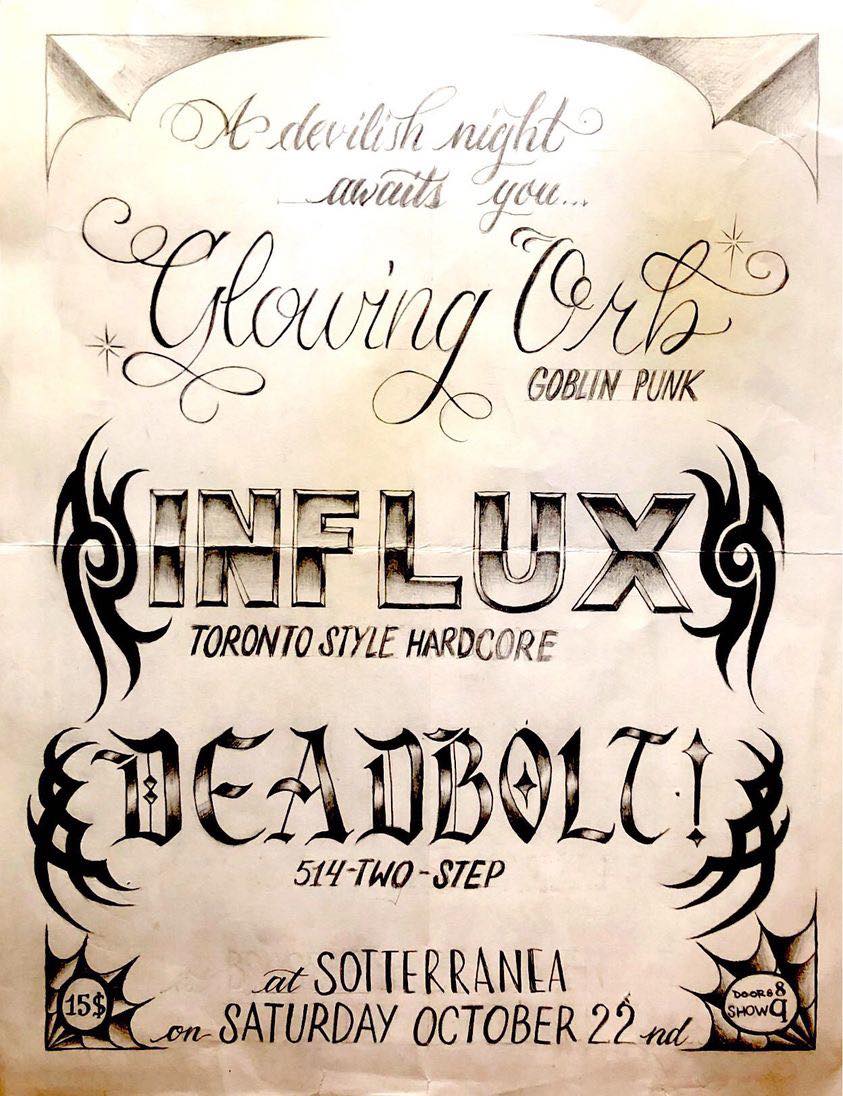 A devilish night
awaits you...
Glowing Orb
GOBLIN PUNK
INFLUX
TORONTO STYLE HARDCORE
DEADBOLT!
514-TWO-STEP
at SOTTERRANEA
on SATURDAY OCTOBER 22nd
15$
DOORS 8
SHOW 9